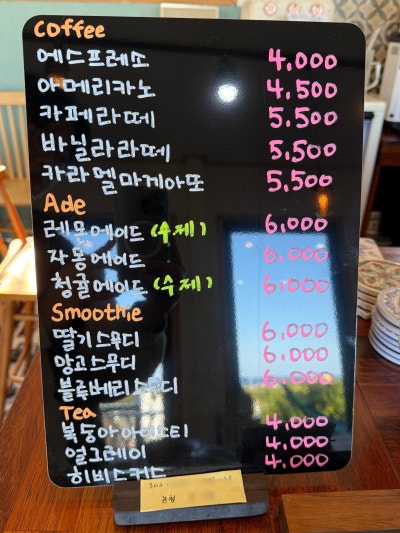 Coffee
에스프레소 4,000
아메리카노 4,500
카페라떼 5,500
바닐라라떼 5,500
카라멜마끼아또 5,500
Ade
레몬에이드 (수제) 6,000
자몽에이드 6,000
청귤에이드 (수제) 6,000
Smoothie
딸기스무디 6,000
망고스무디 6,000
블루베리스무디 6,000
Tea
복숭아아이스티 4,000
얼그레이 4,000
히비스커스 4,000
302-